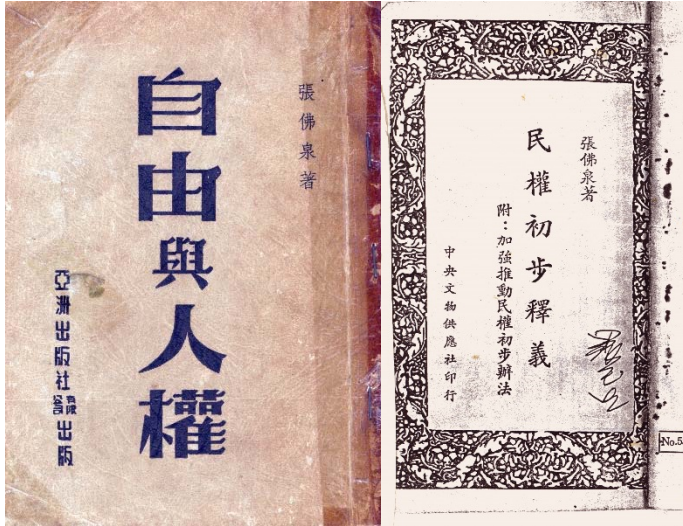 張佛泉著
自由與人權
亞洲出版社有限公司出版
張佛泉著
民權初步釋義
附：加強推動民權初步辦法
中央文物供應社印行
No.5